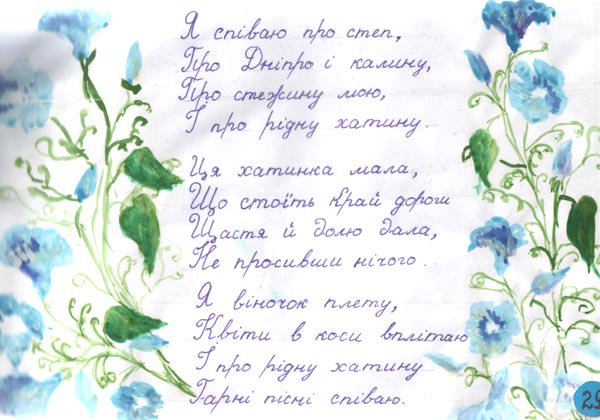 Я співаю про степ,
Про Дніпро і калину,
Про стежину мою,
І про рідну хатину.
Ця хатинка мала,
Що стоїть край дороги
Щастя й долю дала,
Не просивши нічого..
Я віночок плету,
Квіти в коси вплітаю
І про рідну хатину
Гарні пісні співаю.